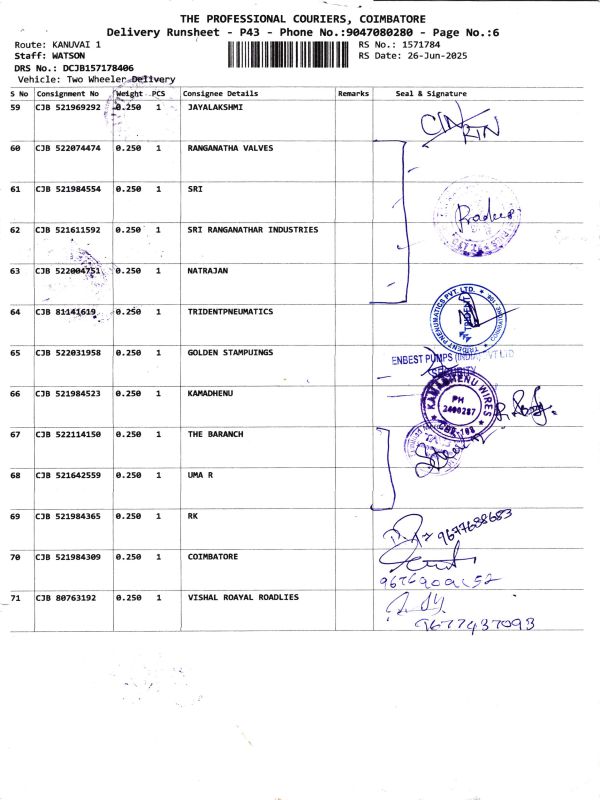 THE PROFESSIONAL COURIERS, COIMBATORE
Delivery Runsheet - P43 - Phone No.:9047080280 - Page No.:6
Route: KANUVAI 1
RS No.: 1571784
Staff: WATSON
RS Date: 26-Jun-2025
DRS No.: DCJB157178406
Vehicle: Two Wheeler Delivery
S No Consignment No Weight PCS Consignee Details Remarks Seal & Signature
59 CJB 521969292 0.250 1 JAYALAKSHMI
60 CJB 522074474 0.250 1 RANGANATHA VALVES
61 CJB 521984554 0.250 1 SRI
62 CJB 521611592 0.250 1 SRI RANGANATHAR INDUSTRIES
63 CJB 522004751 0.250 1 NATRAJAN
64 CJB 81141619 0.250 1 TRIDENTPNEUMATICS
TRIDENT PNEUMATICS PVT. LTD.
65 CJB 522031958 0.250 1 GOLDEN STAMPUINGS
ENBEST PUMPS (INDIA) PVT LTD
SECURITY
66 CJB 521984523 0.250 1 KAMADHENU
KAMADHENU WIRES
PH
2400287
CBE-108
67 CJB 522114150 0.250 1 THE BARANCH
68 CJB 521642559 0.250 1 UMA R
69 CJB 521984365 0.250 1 RK
9677688683
70 CJB 521984309 0.250 1 COIMBATORE
71 CJB 80763192 0.250 1 VISHAL ROAYAL ROADLIES
9677437093